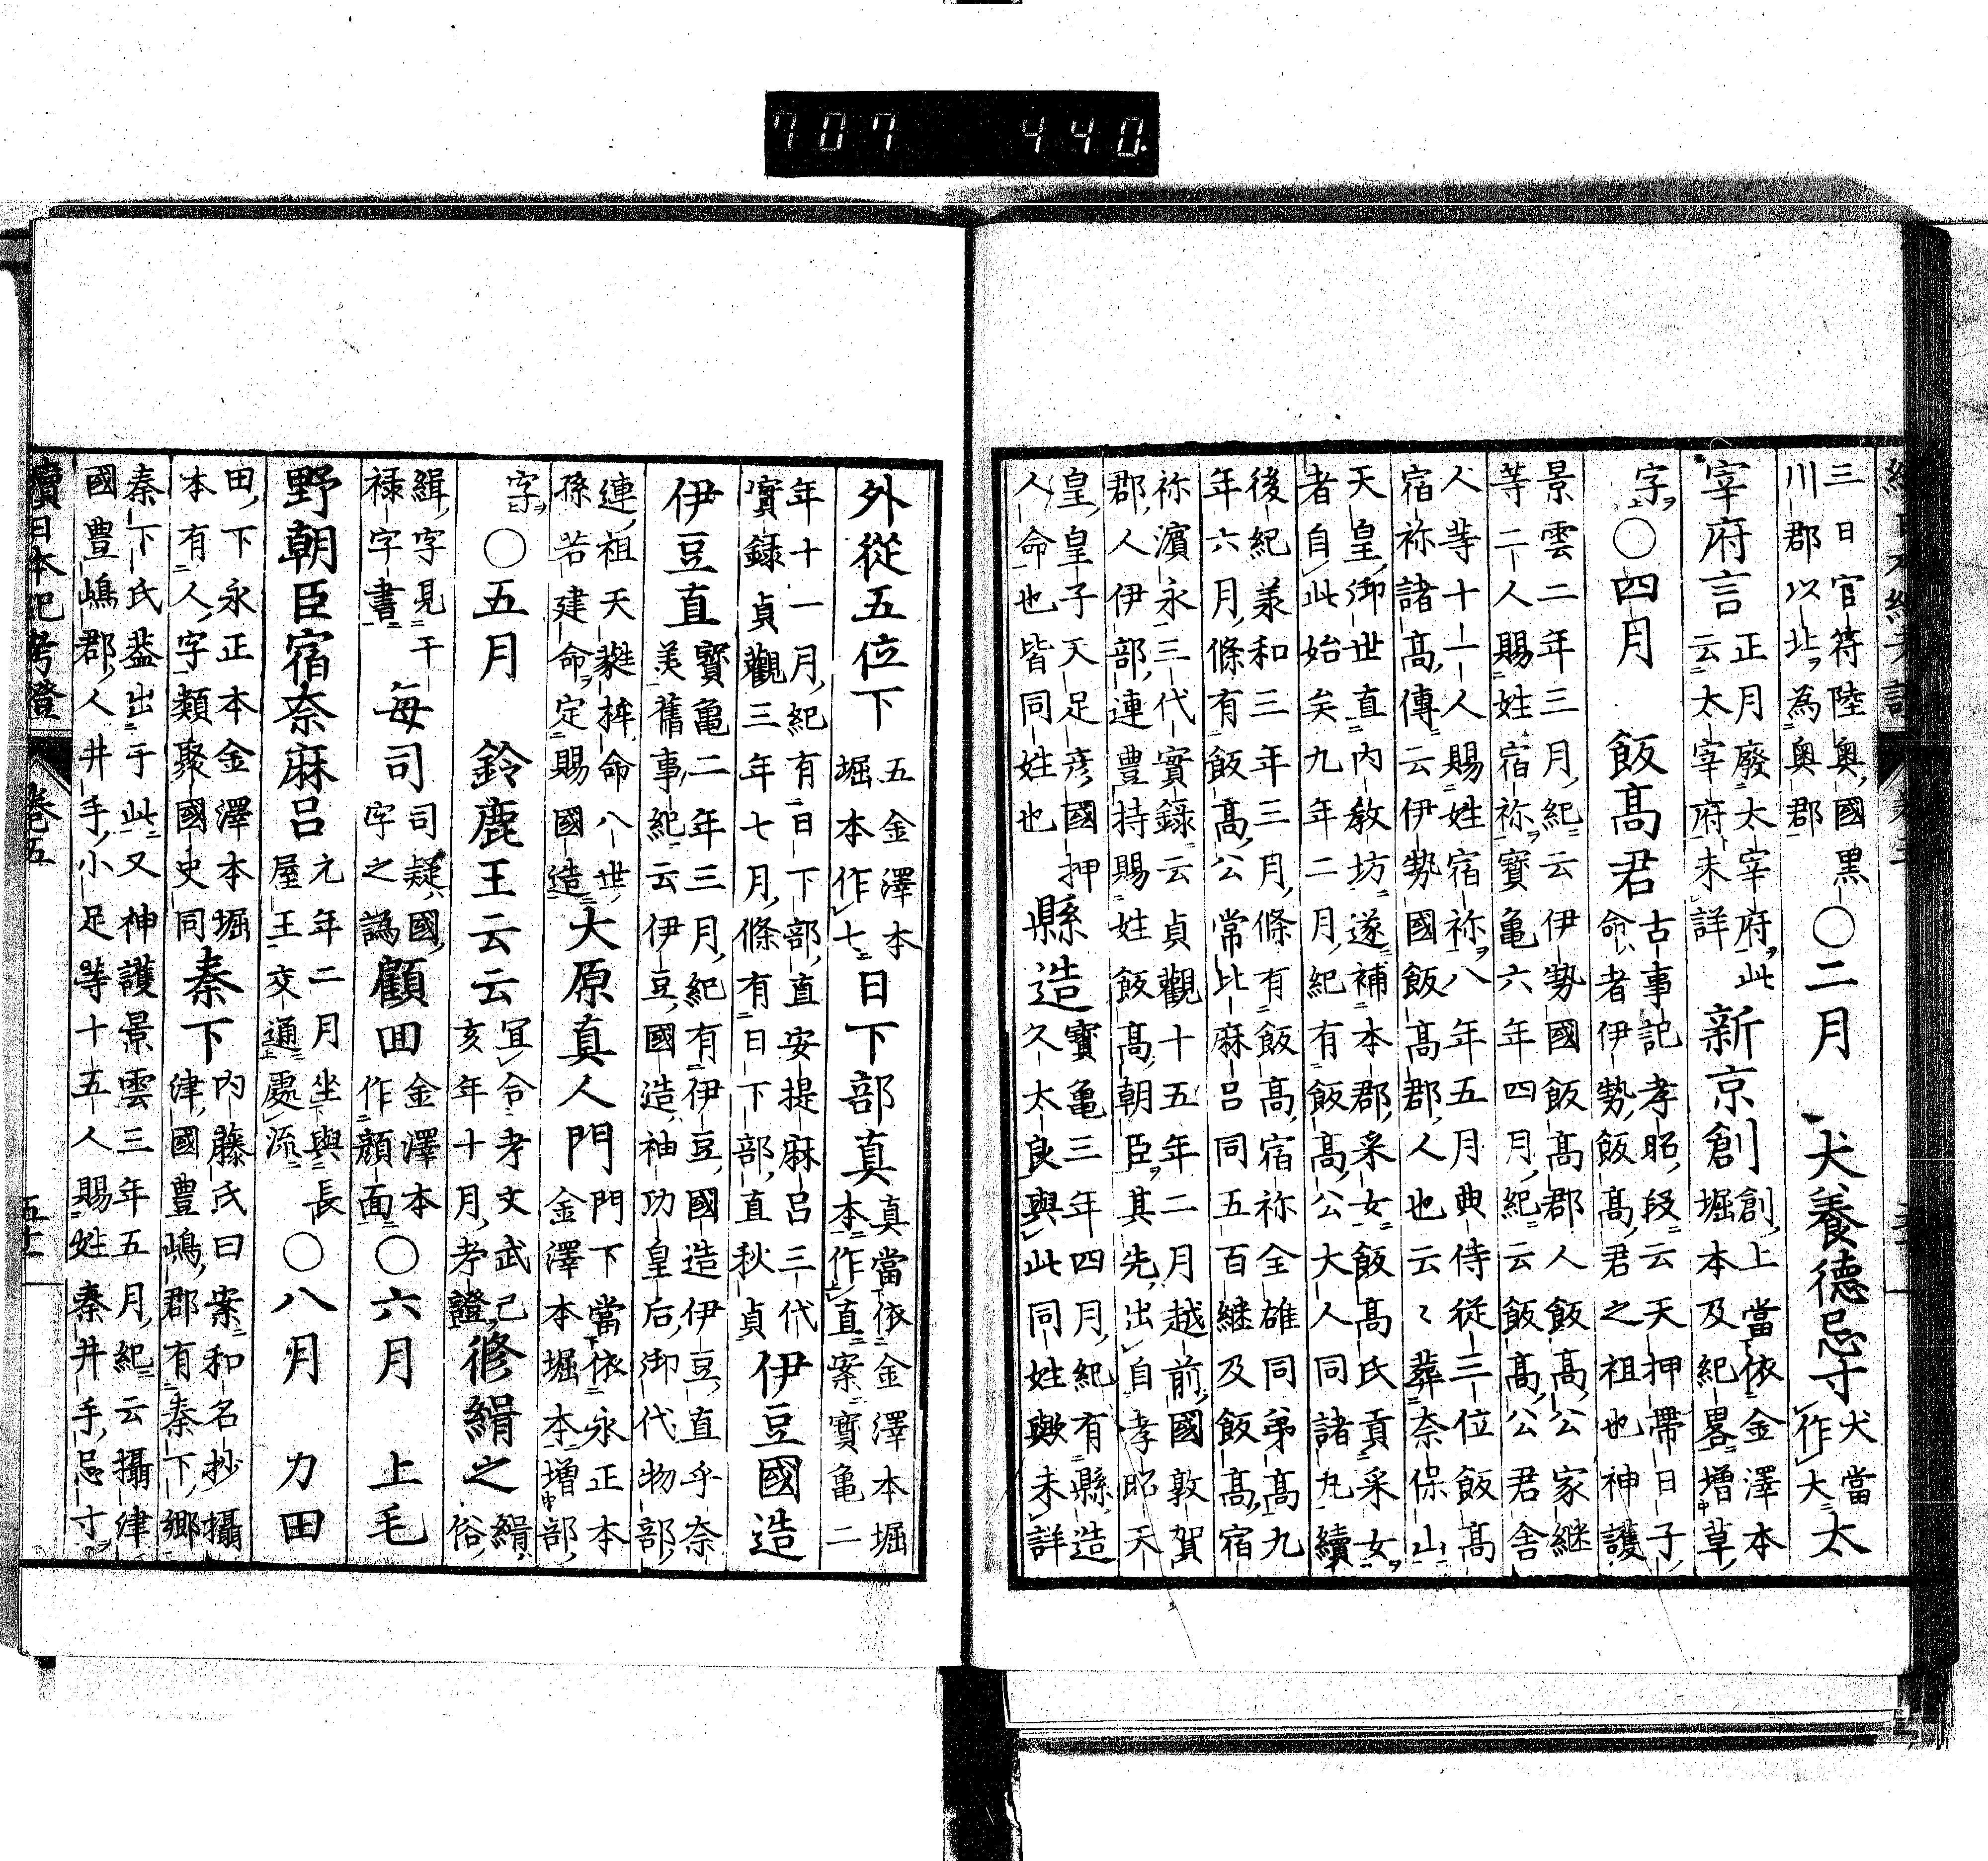 707 440
三日官符陸奥國黒
川郡以北為奥郡
〇二月 犬養德忌寸
犬當
作大
太
宰府言
正月廢太宰府此
云太宰府未詳
新京創
創上當依金澤本
堀本及紀畧增草
字
〇四月 飯髙君
古事記孝昭段云天押帶日子
命者伊勢飯髙君之祖也神護
景雲二年三月紀云伊勢國飯髙郡人飯髙公家継
等二人賜姓宿祢寶亀六年四月紀云飯髙公君舍
人等十一人賜姓宿祢八年五月典侍從三位飯髙
宿祢諸髙傳云伊勢國飯髙郡人也云〻葬奈保山
天皇御世直内教坊遂補本郡采女飯髙氏貢采女
者自此始矣九年二月紀有飯髙公大人同諸丸續
後紀羕和三年三月條有飯髙宿祢全雄同弟髙九
年六月條有飯髙公常比麻呂同五百継及飯髙宿
祢濱永三代實録云貞觀十五年二月越前國敦賀
郡人伊部連豊持賜姓飯髙朝臣其先出自孝昭天
皇皇子天足彦國押
人命也皆同姓也
縣造
寶亀三年四月紀有縣造
久太良與此同姓歟未詳
外從五位下
五金澤本堀本作七
日下部真
真當依金澤本堀
本作直案寶亀二
年十一月紀有日下部直安提麻呂三代
實録貞觀三年七月條有日下部直秋貞
伊豆國造
伊豆直
寶亀二年三月紀有伊豆國造伊豆直乎奈
美舊事紀云伊豆國造神功皇后御代物部
連祖天蕤桙命八世
孫若建命定賜國造
大原真人門
門下當依永正本
金澤本堀本增部
字
〇五月 鈴鹿王云云
冝合考文武己
亥年十月考證
修緝之
緝俗
緝字見干
禄字書
每司
司疑國
字之譌
顧面
金澤本
作顏面
〇六月 上毛
野朝臣宿奈麻呂
元年二月坐與長
屋王交通處流
〇八月 力田
田下永正本金澤本堀
本有人字類聚國史同
秦下
内藤氏曰案和名抄攝
津國豊嶋郡有秦下郷
秦下氏葢出于此又神護景雲三年五月紀云攝津
國豊嶋郡人井手小足等十五人賜姓秦井手忌寸
續日本紀考證 卷五